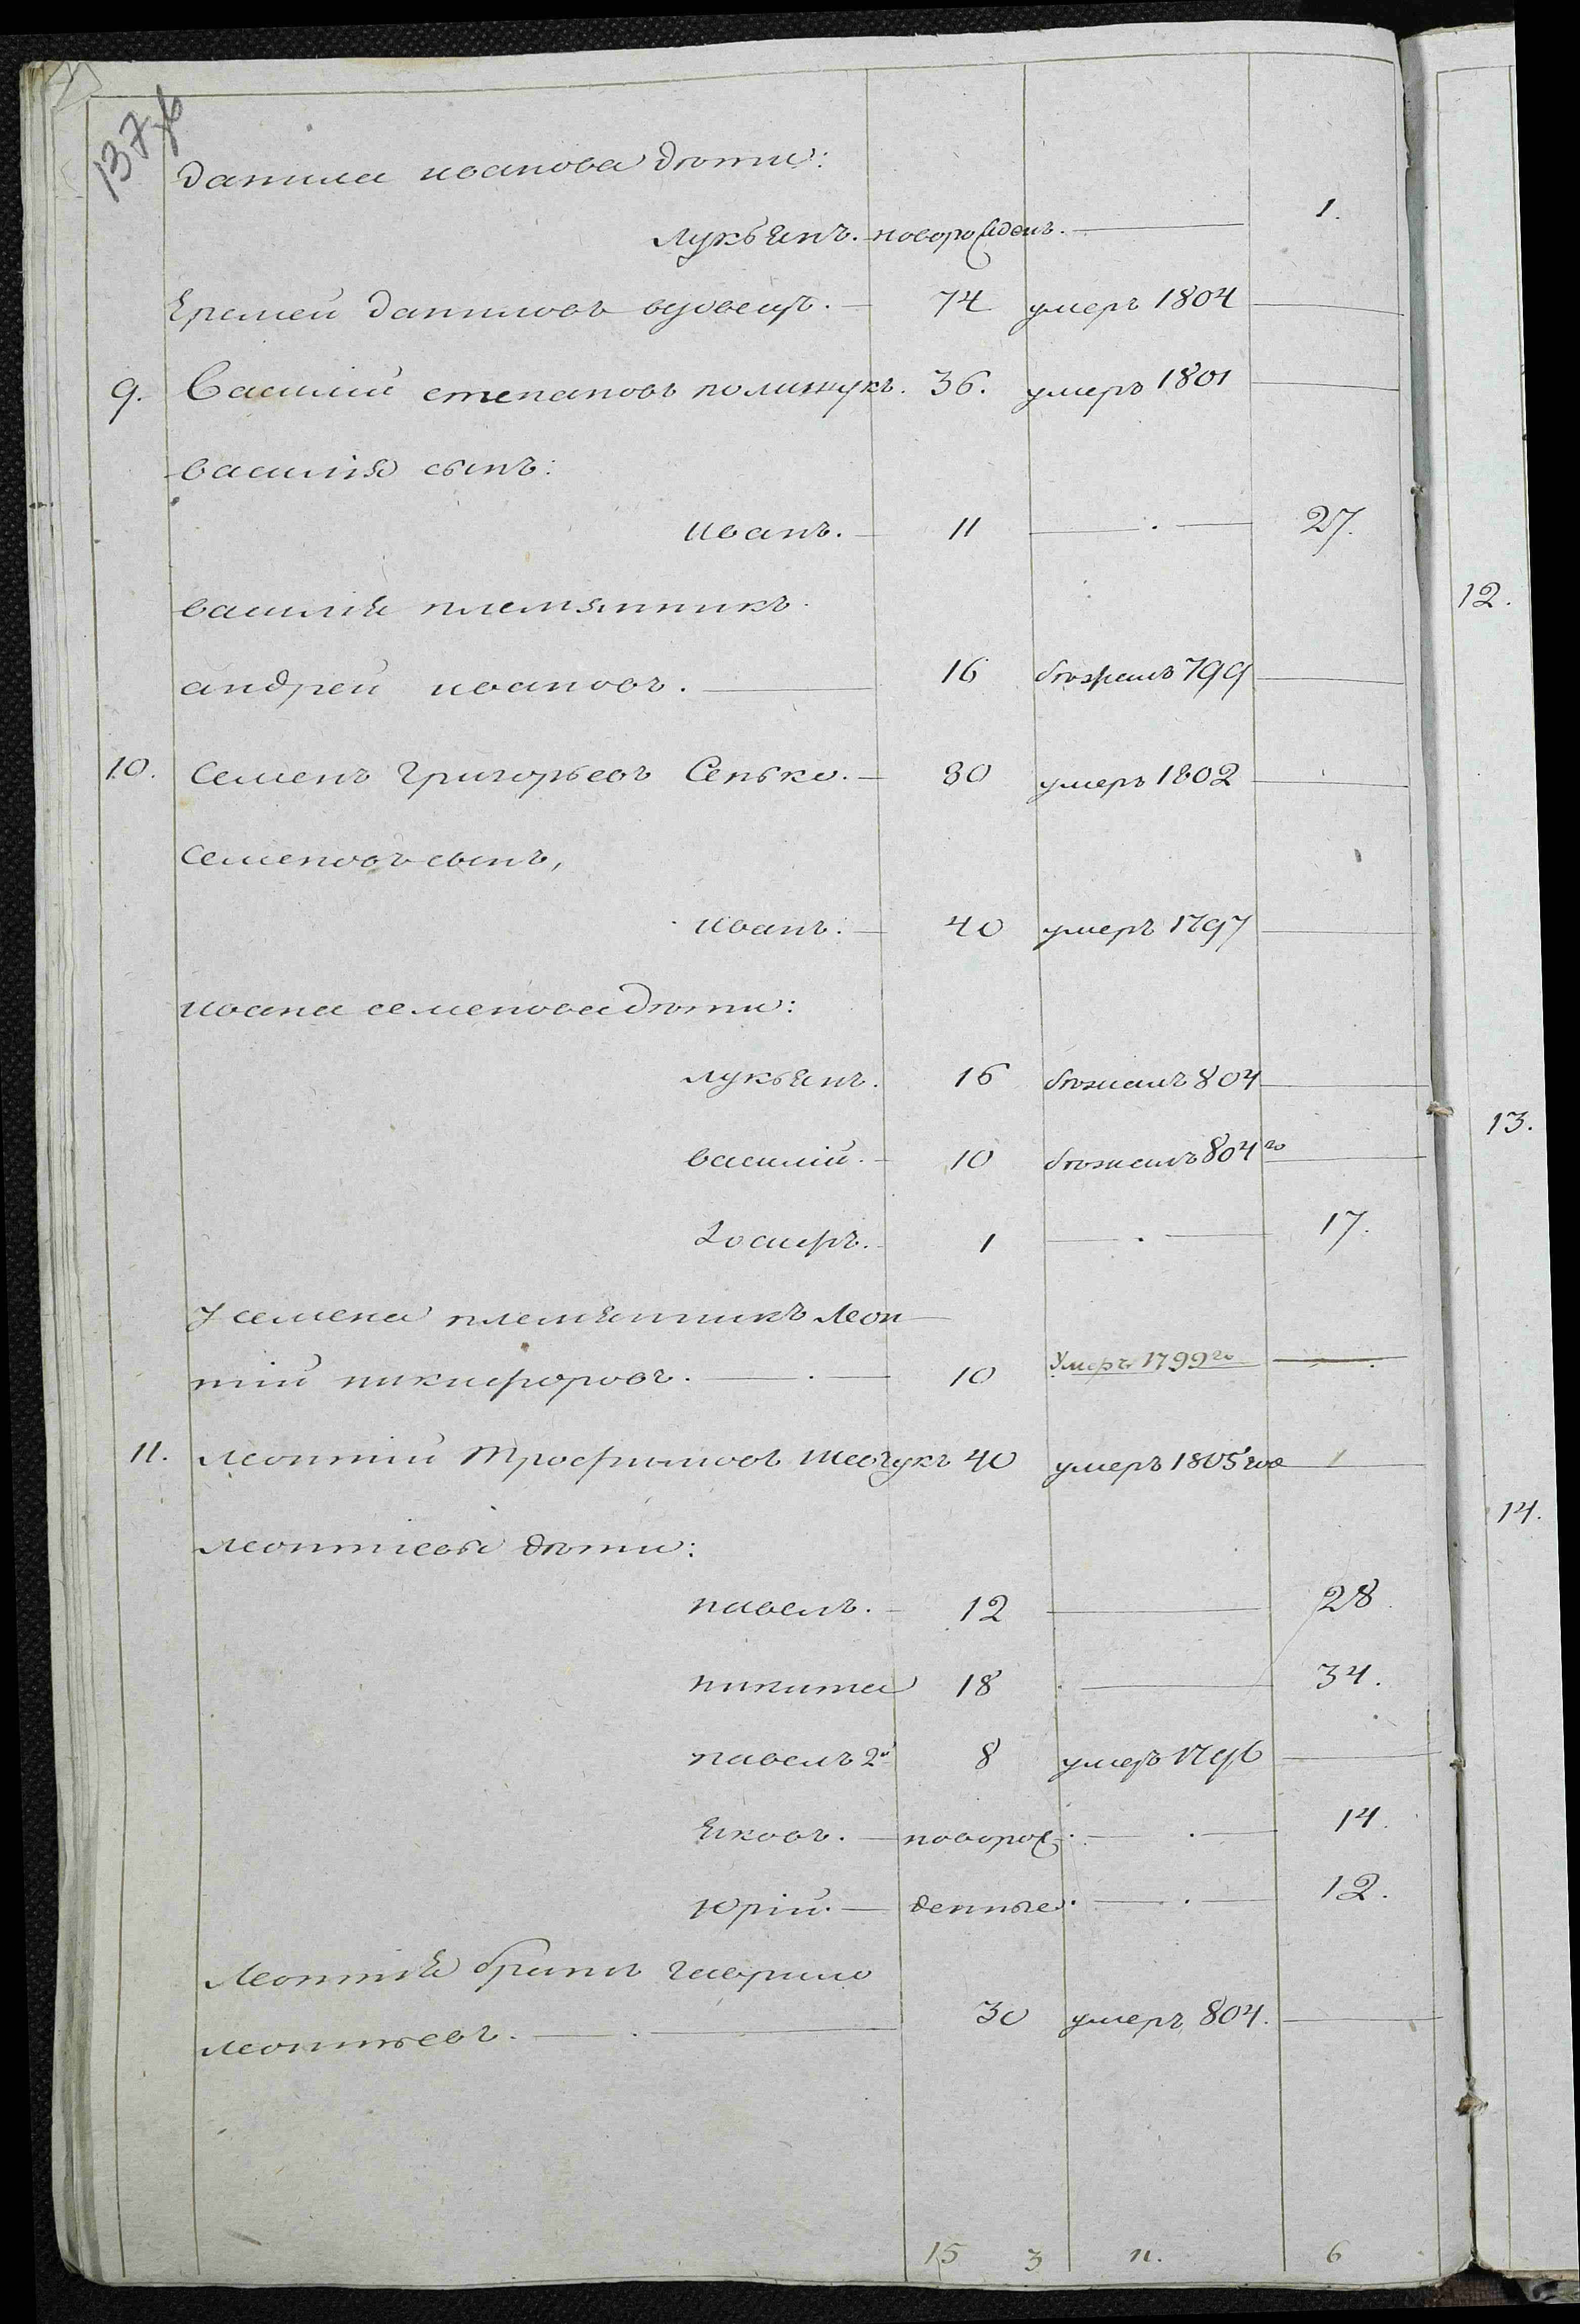 137об
Данила иванова дѣти:
лукьянъ. новорожденъ. 1.
Еремей Даниловъ вдовецъ. 74 умеръ 1804
9. Василий степановъ полищукъ. 36. умеръ 1801
василія сынъ:
иванъ. 11 27.
василія племянникъ
андрей ивановъ. 16 бѣжалъ 799
10. Семенъ Григорьевъ Сенько. 80 умеръ 1802
семеновъ сынъ,
иванъ. 40 умеръ 1797
ивана семенова дѣти:
лукьянъ. 16 бѣжалъ 804
василій. 10 бѣжалъ 804го
1 17.
У семена племянникъ Леон
тій никифоровъ. 10 Умеръ 1799го
11. леонтий Трофимовъ шевчукъ 40 умеръ 1805 года
леонтіевы дѣти:
павелъ. 12 28.
никита 18 34.
павелъ 2й 8 умеръ 1796
Яковъ. новорож 14.
юрій. денные. 12.
Леонтія братъ гаврило
леонтьевъ. 30 умеръ 804.
15 3 11. 6
12.
13.
14.